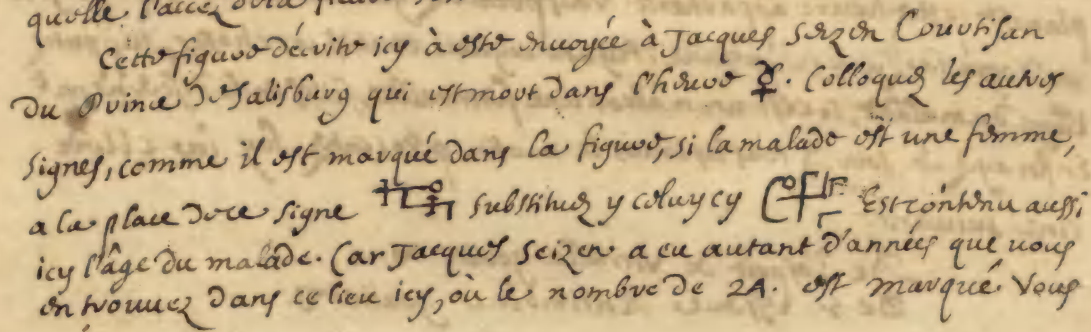 quelle l'accez de la
Cette figure décrite icy à esté envoyée à Jacques Seizen Courtisan
du Prince de Salisburg qui est mort dans l'heure ☿. Colloquez les autres
signes, comme il est marqué dans la figure, si la malade est une femme,
a la place de ce signe substituez y celuy cy Est contenu aussi
icy l'âge du malade. Car Jacques Seizen a eu autant d'années que vous
en trouvez dans ce lieu icy, où le nombre de 24. est marqué. Vous